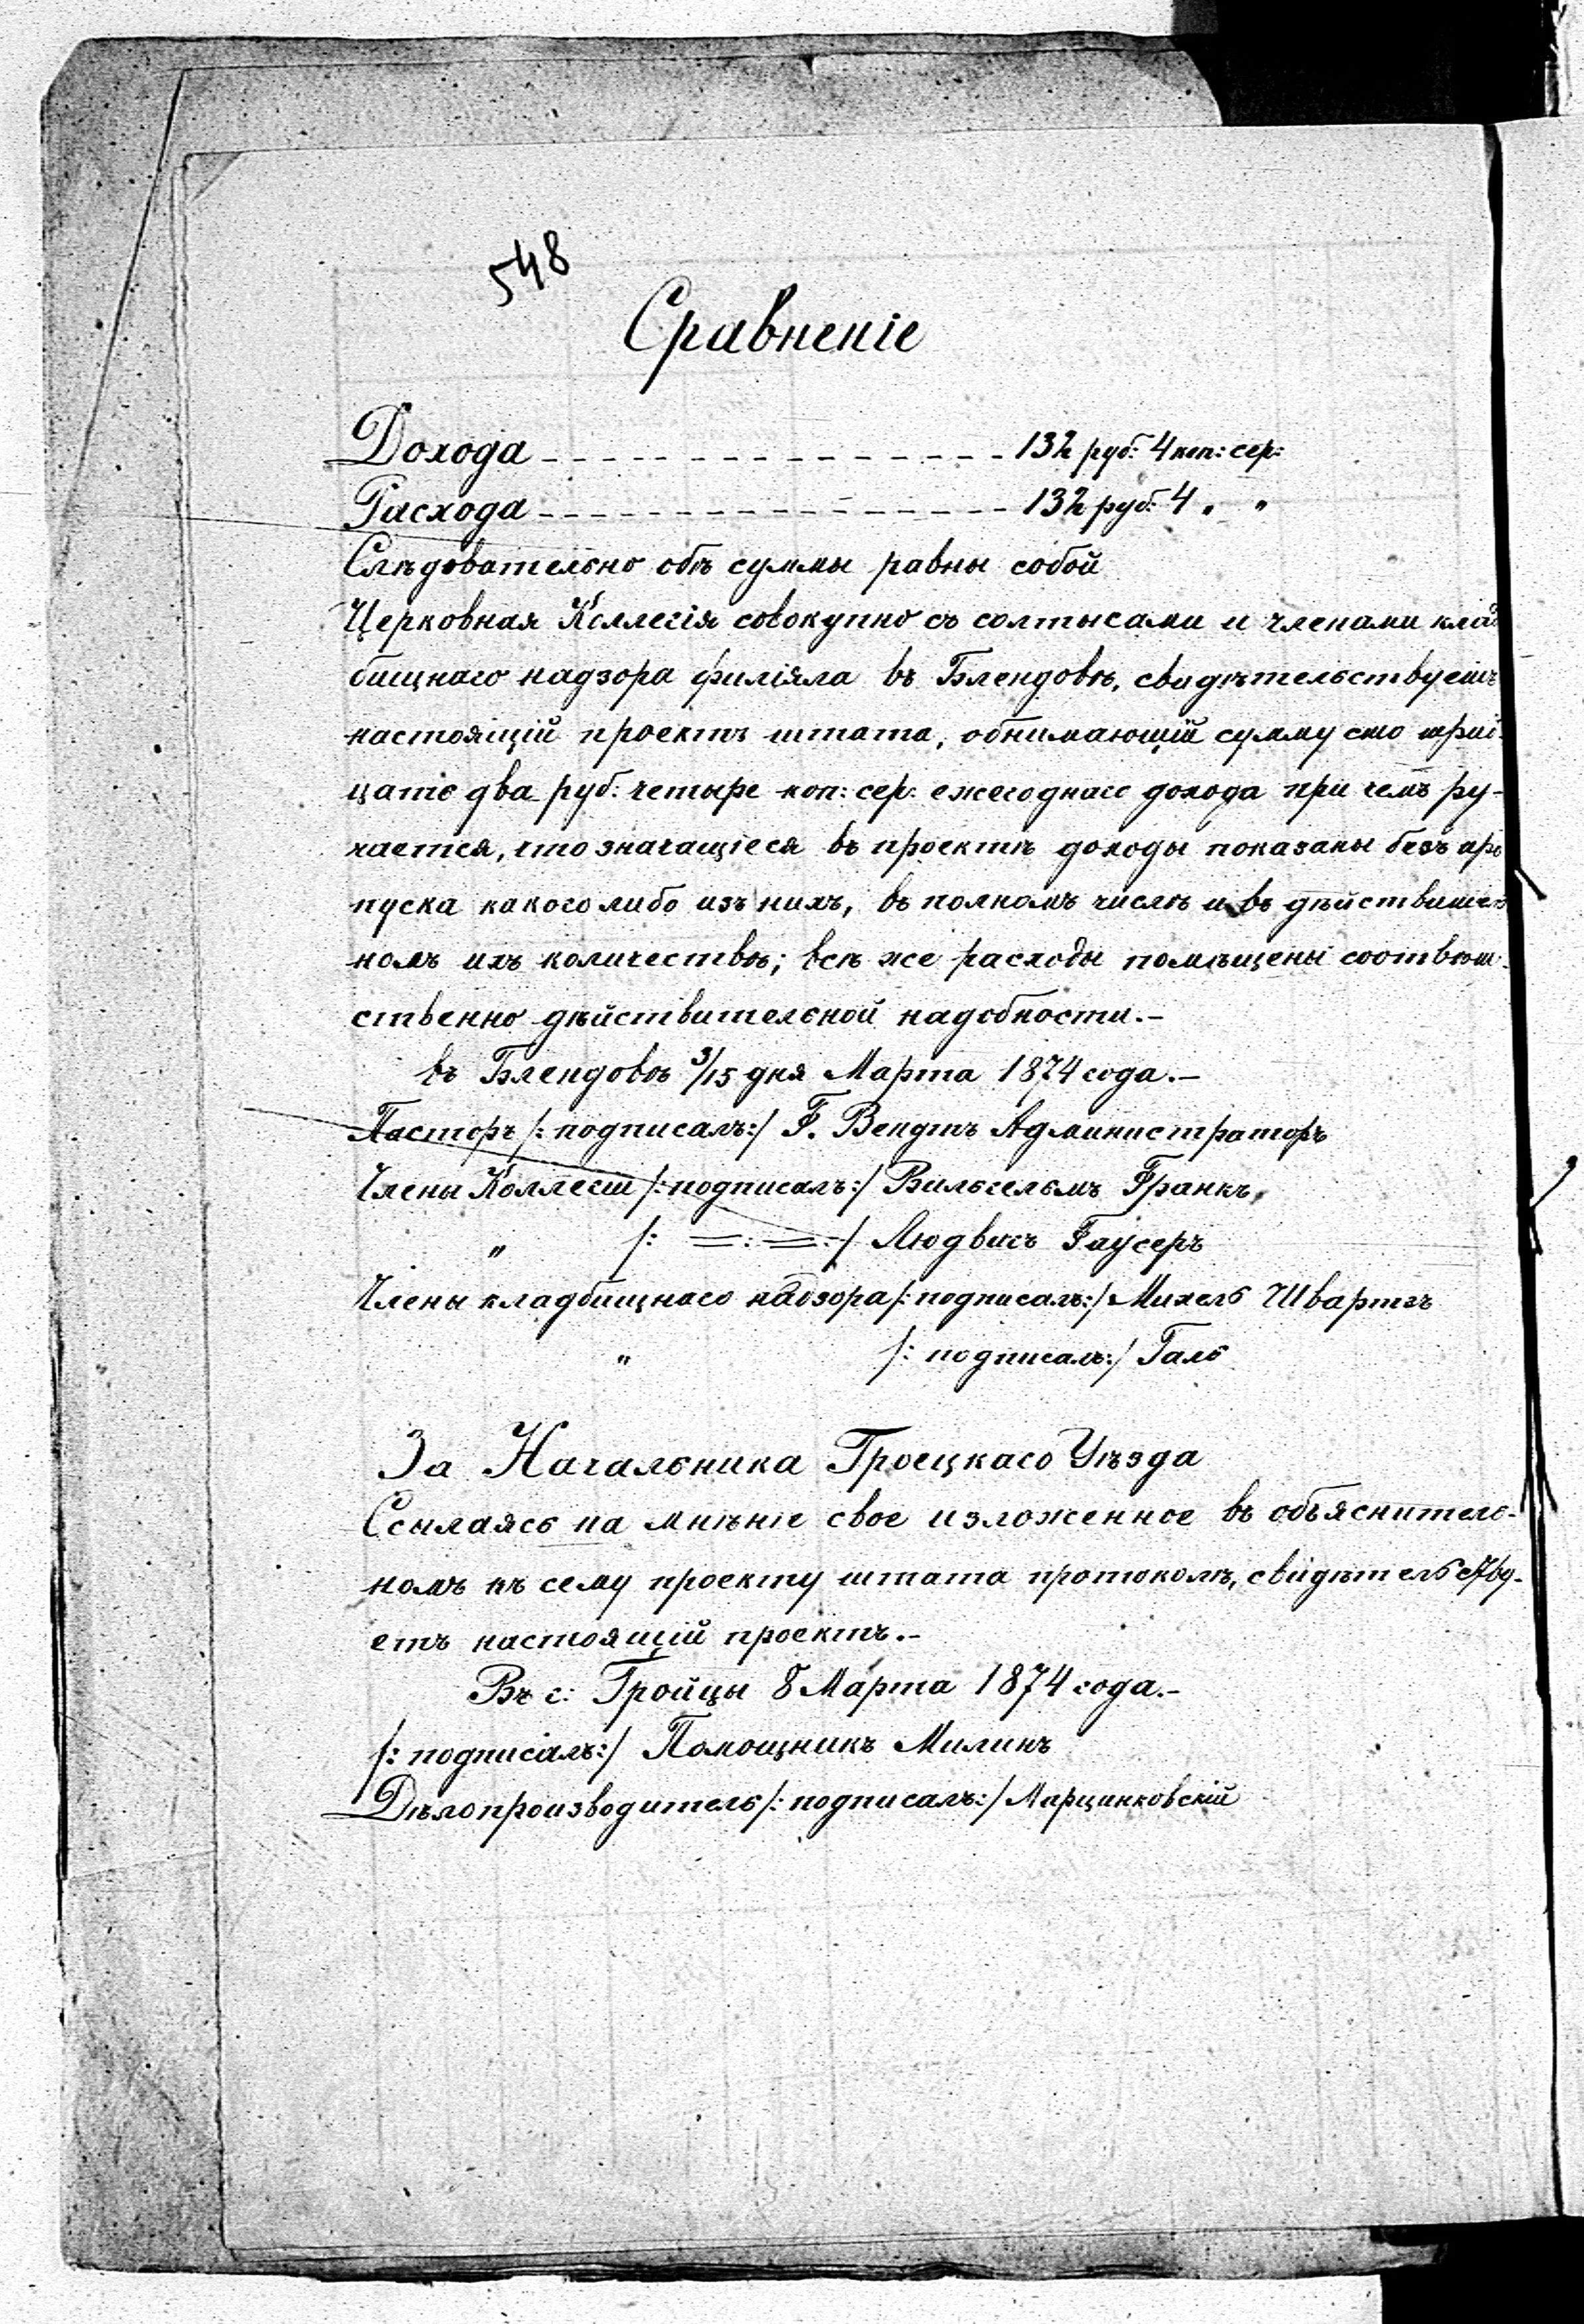 548
Сравненіе
Дохода - - - - - - - - - - - - - - - - 132 руб: 4 коп: сер:
Расхода - - - - - - - - - - - - - - - - 132 руб: 4 „ „
Слѣдовательно обѣ суммы равны собой
Церковная Коллегія совокупно съ солтысами и членами клад
бищнаго надзора филіяла въ Блендовѣ, свидѣтельствуетъ
настоящій проектъ штата, обнимающій сумму сто трид-
цать два руб: четыре коп: сер: ежегоднаго дохода при чемъ ру-
чается, что значащіеся въ проектѣ доходы показаны безъ про
пуска какого либо изъ нихъ, въ полномъ числѣ и въ дѣйствитель
номъ ихъ количествѣ; всѣ же расходы помѣщены соотвѣт-
ственно дѣйствительной надобности.-
въ Блендовѣ 3/15 дня Марта 1874 года.-
Пасторъ /: подписалъ:/ Г. Вендтъ Администраторъ
Члены Коллегіи /: подписалъ:/ Вильгельмъ Франкъ,
„ /: =:=:/ Людвигъ Гаусеръ
Члены кладбищнаго надзора /: подписалъ:/ Михель Шварцъ
„ /: подписалъ:/ Галь
За Начальника Гроецкаго Уѣзда
Ссылаясь на мнѣніе свое изложенное въ объяснитель-
номъ къ сему проекту штата протоколѣ, свидѣтельству-
етъ настоящій проектъ.-
Въ г: Гройцы 8 Марта 1874 года.-
/: подписалъ:/ Помощникъ Милинъ
Дѣлопроизводитель /: подписалъ:/ Марцинковскій